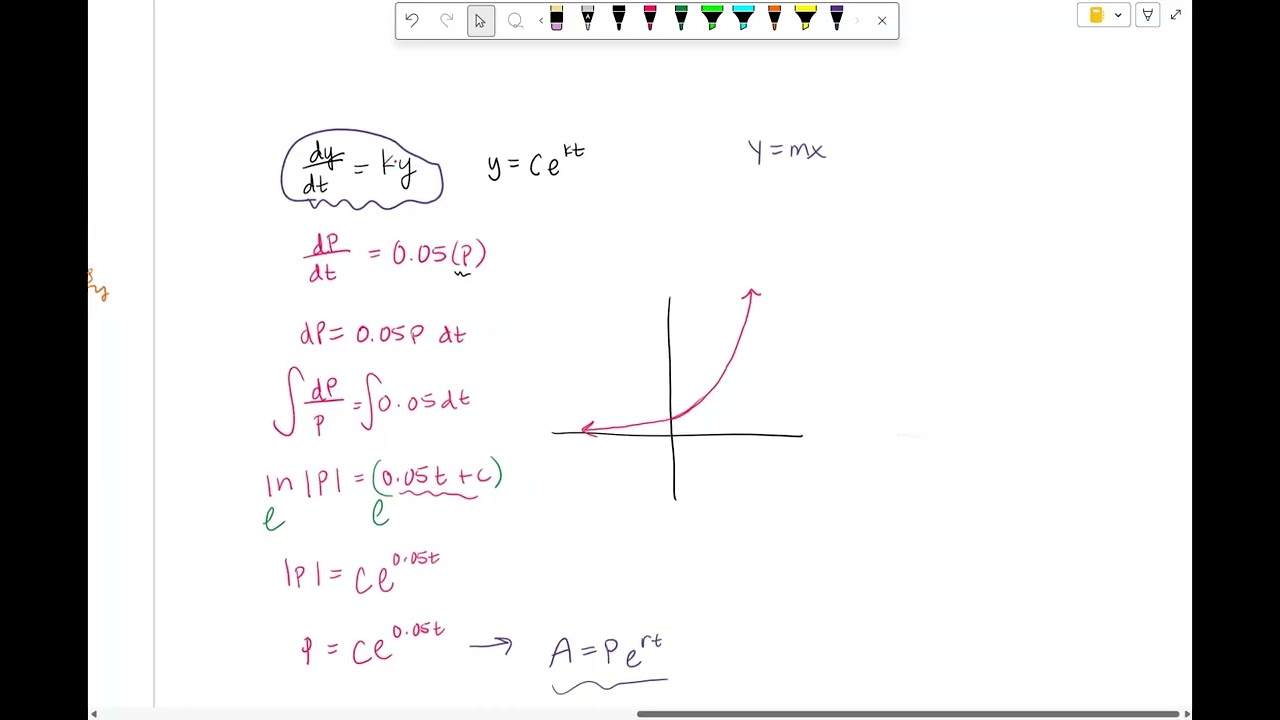 dy/dt = k·y
y = Ce^{kt}
y = mx
dP/dt = 0.05(P)
dP = 0.05P dt
∫ dP/P = ∫ 0.05 dt
ln |P| = (0.05t + c)
e e
|P| = Ce^{0.05t}
P = Ce^{0.05t} → A = Pe^{rt}
y